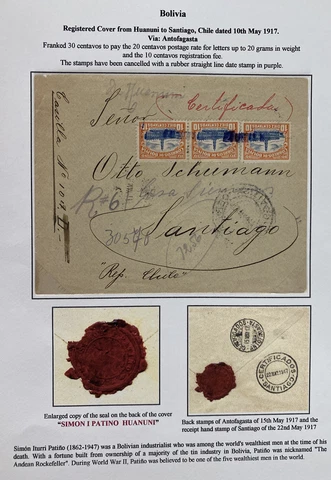 Bolivia
Registered Cover from Huanuni to Santiago, Chile dated 10th May 1917.
Via: Antofagasta
Franked 30 centavos to pay the 20 centavos postage rate for letters up to 20 grams in weight
and the 10 centavos registration fee.
The stamps have been cancelled with a rubber straight line date stamp in purple.
Huanuni
(Certificada)
Señor
Casilla Nº 1018. D
Otto Schumann
R. #6
Casa
30578
Santiago
"Rep. Chile"
CERTIFICADOS
SANTIAGO
Enlarged copy of the seal on the back of the cover
"SIMON I PATINO HUANUNI"
Back stamps of Antofagasta of 15th May 1917 and the
receipt hand stamp of Santiago of the 22nd May 1917
Simón Iturri Patiño (1862-1947) was a Bolivian industrialist who was among the world's wealthiest men at the time of his
death. With a fortune built from ownership of a majority of the tin industry in Bolivia, Patiño was nicknamed "The
Andean Rockefeller". During World War II, Patiño was believed to be one of the five wealthiest men in the world.